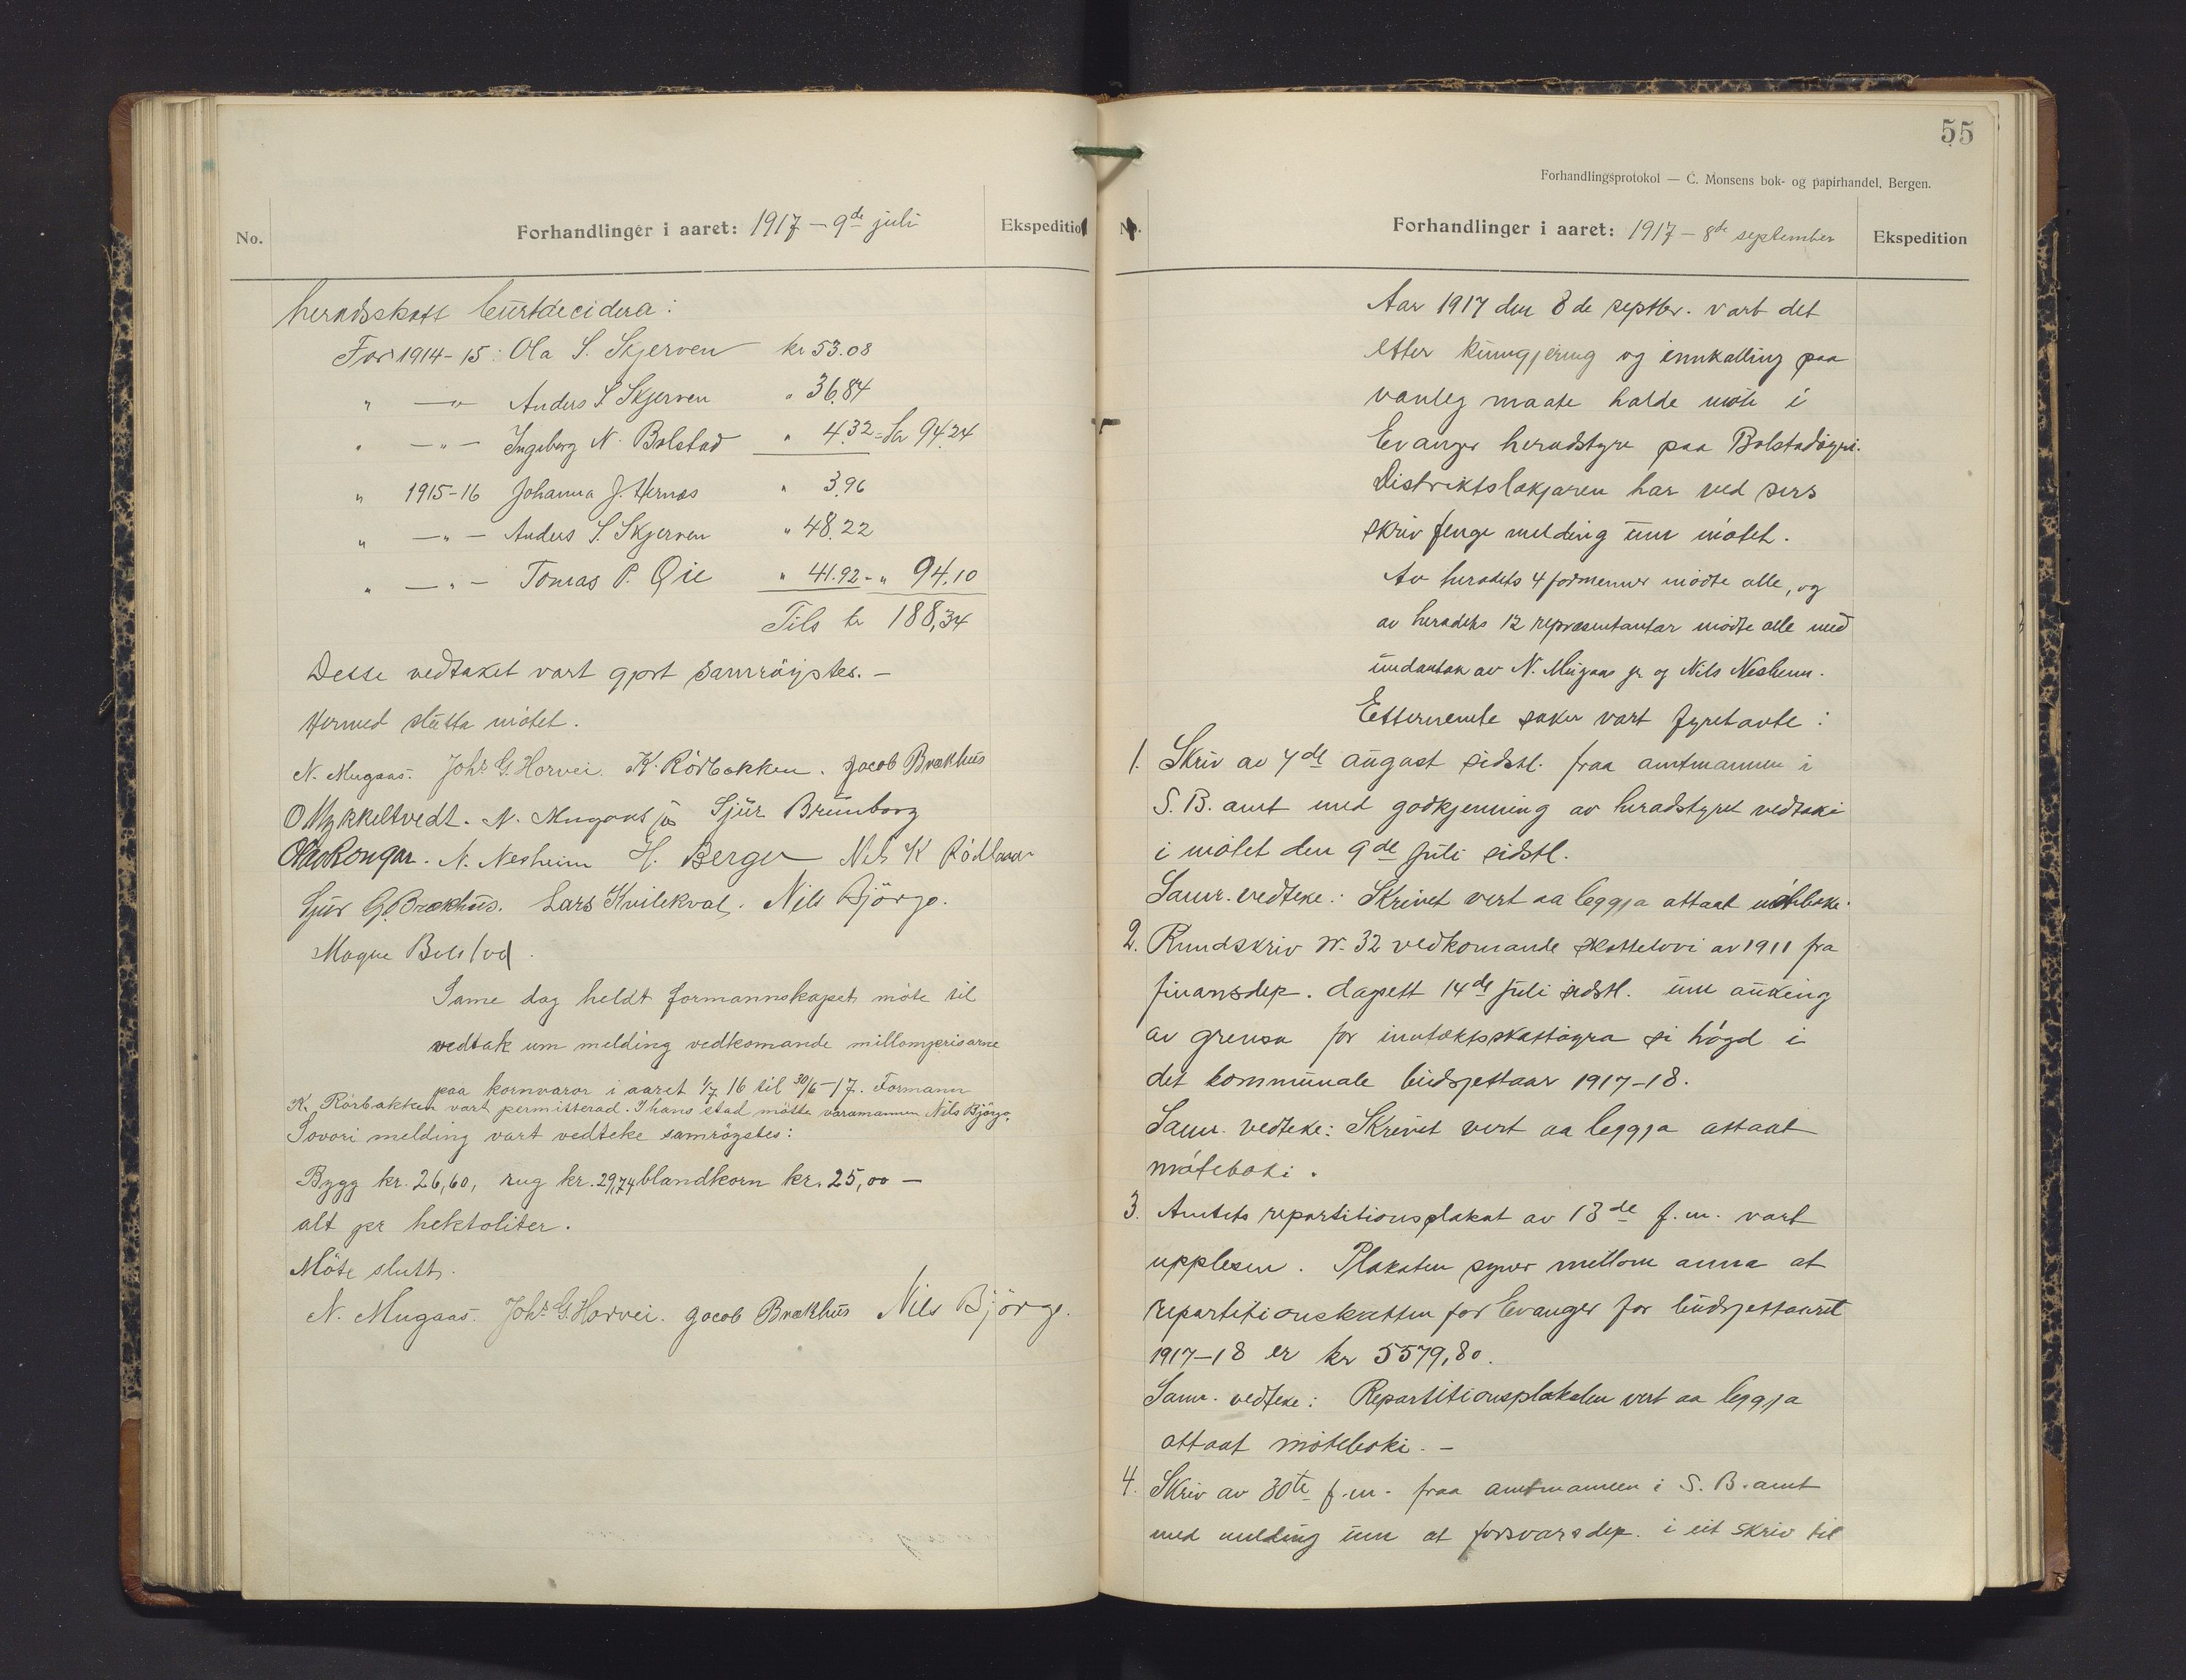 No.
Forhandlinger i aaret: 1917 — 9de juli
Ekspedition
heradsskatt burtdecidera:
For 1914-15: Ola S. Skjerven kr 53.08
" —"— Anders S. Skjerven " 36.84
" —"— Ingeborg N. Bolstad " 4.32 = kr 94.24
" 1915-16 Johanna J. Hernes " 3.96
" —"— Anders S. Skjerven " 48.22
" —"— Tomas P. Øie " 41.92 - " 94.10
Tils kr 188,34
Desse vedtaket vart gjort samrøystes. —
Hermed slutta møtet.
N. Mugaas. Johs G. Horvei. K. Rörbakken. Jacob Brækhus
O Mykkeltvedt. N. Mugaas jr Sjur Brunborg
N. Nesheim H. Berger Nils K Rödland
Sjur G. Brækhus. Lars Kvilekval. Nils Björgo.
Magne Bolstad.
Same dag heldt formannskapet möte til
vedtak um melding vedkomande millomprisarne
paa kornvaror i aaret 1/7 16 til 30/6-17. Formann
K. Rörbakken vart permitterad. I hans stad mötte varamannen Nils Björgo.
Sovori melding vart vedteke samröystes:
Bygg kr. 26,60, rug kr. 29,74 blandkorn kr. 25,00 —
alt pr hektoliter.
Möte slutt.
N. Mugaas. Johs G. Horvei. Jacob Brækhus Nils Björgo.
55
Forhandlingsprotokol — C. Monsens bok- og papirhandel, Bergen.
No.
Forhandlinger i aaret: 1917 — 8de september
Ekspedition
Aar 1917 den 8de septbr. vart det
etter kunngjering og innkalling paa
vanleg maate halde møte i
Evanger heradstyre paa Bolstadøyri.
Distriktslækjaren har ved sers
skriv fenge melding um møtet.
Av heradets 4 formenner møtte alle, og
av heradets 12 repræsentantar møtte alle med
undantak av N. Mugaas jr og Nils Nesheim.
Etternemte saker vart fyretante:
1. Skriv av 4de august sidstl. fraa amtmannen i
S. B. amt med godkjenning av heradstyret vedtaki
i møtet den 9de juli sidstl.
Samr. vedteke: Skrivet vert aa leggja attaat møteboki.
2. Rundskriv nr. 32 vedkomande skattelovi av 1911 fra
finansdep. dagsett 14de juli sidstl. um auking
av grensa for inntæktsskattøyra si høgd i
det kommunale budsjettaar 1917-18.
Samr. vedteke: Skrivet vert aa leggja attaat
møteboki.
3. Amtets repartitionsplakat av 13de f.m. vart
upplesen. Plakaten syner millom anna at
repartitionskatten for Evanger for budsjettaaret
1917-18 er kr 5579,80.
Samr. vedteke: Repartitionsplakaten vert aa leggja
attaat møteboki. —
4. Skriv av 30te f.m. fraa amtmannen i S. B. amt
med melding um at forsvarsdep. i eit skriv til